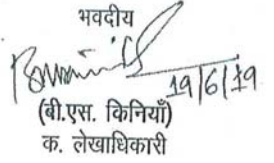 भवदीय
19/6/19
(बी.एस. किनियाँ)
क. लेखाधिकारी